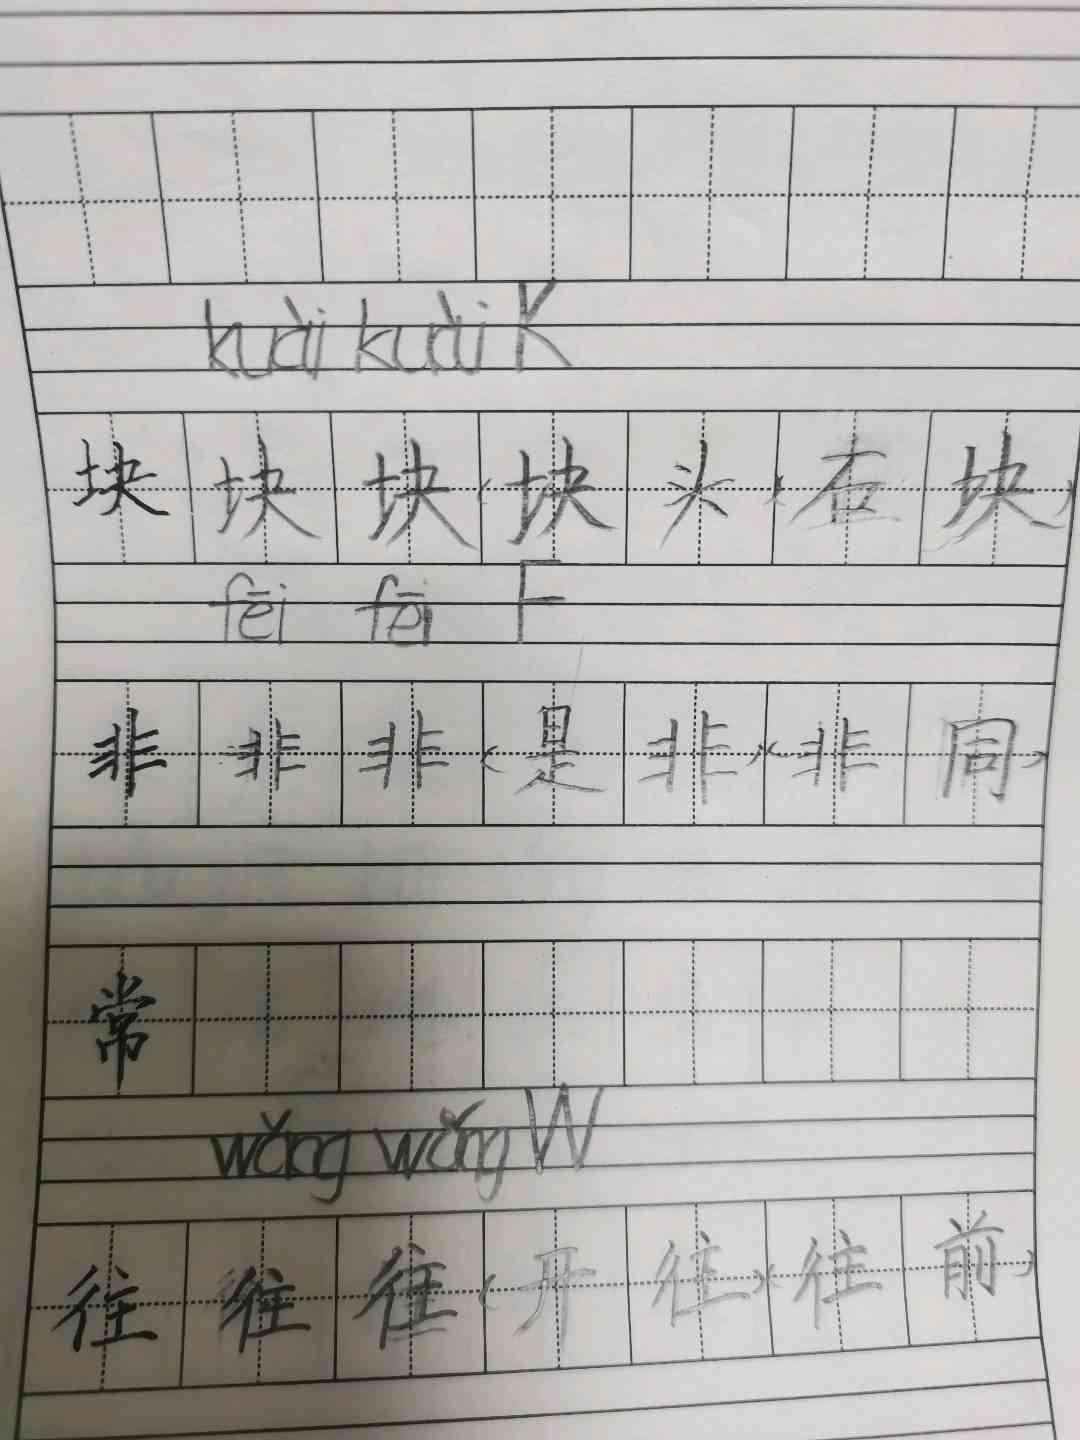 kuài kuài K
块 块 块 (块 头) (石 块)
fēi fēi F
非 非 非 (是 非) (非 同)
常
wǎng wǎng W
往 往 往 (开 往) (往 前)